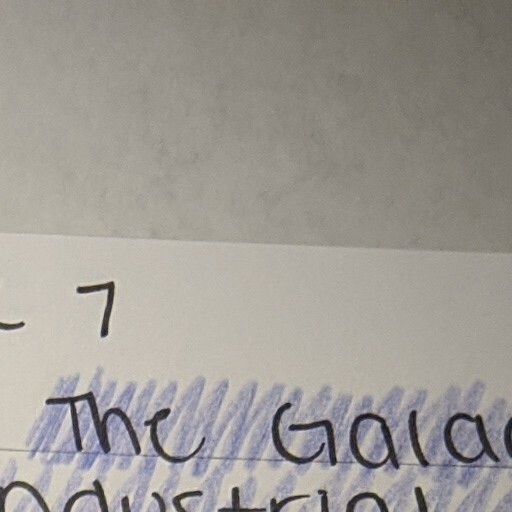 7
The Galac
ndustrial